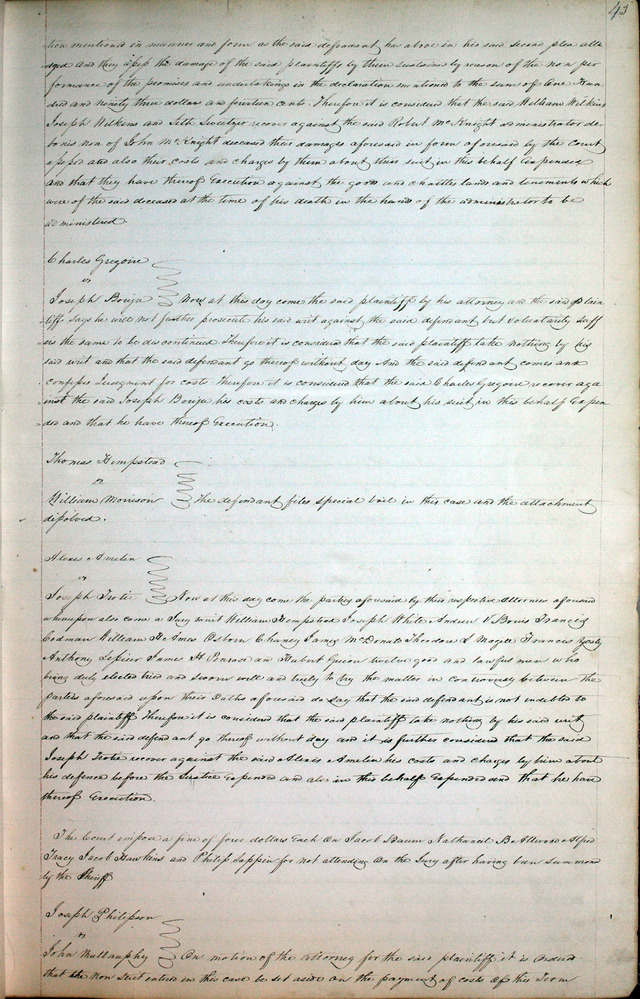 43
tion mentioned in manner and form as the said defendant has above in his said second plea alle
dged and they assess the damage of the said plaintiffs by them sustained by reason of the non per
formance of the promises and undertakings in the declaration mentioned to the sum of One Hun
dred and Ninety three dollars and fourteen cents Therefore it is considered that the said William Wilkins
Joseph Wilkins and Seth recover against the said Robert McKnight administrator de
bonis non of John McKnight deceased their damages aforesaid in form aforesaid by the Court
assessed and also their costs and charges by them about their suit in this behalf Expended
and that they have thereof Execution against the goods and chattles lands and tenements which
were of the said deceased at the time of his death in the hands of the administrator to be
administered
Charles Gregoire
vs
Joseph Bouju Now at this day come the said plaintiff by his attorney and the said plain
tiff says he will not further prosecute his said writ against the said defendant but voluntarily suff
ers the same to be discontinued Therefore it is considered that the said plaintiff take nothing by his
said writ and that the said defendant go thereof without day And the said defendant comes and
confesses Judgment for costs Therefore it is considered that the said Charles Gregoire recover aga
inst the said Joseph Bouju his costs and charges by him about his suit in this behalf Expen
ded and that he have thereof Execution.
Thomas Hempstead
vs
William Morrison The defendant files special bail in this case and the attachment
dissolved.
Alexis Amelin
vs
Joseph Trotie Now at this day come the parties aforesaid by their respective attornies aforesaid
whereupon also come a Jury to wit William Hempstead Joseph White Andrew V Bouis Francis
Codman William St Ames Osborn Chaney James McDonald Theodore L Magill Francis
Anthony James H Penrose and Hubert Guion twelve good and lawful men who
being duly elected tried and sworn well and truly to try the matter in controversy between the
parties aforesaid upon their Oaths aforesaid do say that the said defendant is not indebted to
the said plaintiff Therefore it is considered that the said plaintiff take nothing by his said writ
and that the said defendant go thereof without day and it is further considered that the said
Joseph Trotie recover against the said Alexis Amelin his costs and charges by him about
his defence before the Justice Expended and also in this behalf Expended and that he have
thereof Execution.
The Court impose a fine of four dollars Each On Jacob Baum Nathaniel B Attwood Alfred
Tracy Jacob Hawkins and Philip for not attending On the Jury after having been summoned
by the Sheriff
Joseph Philipson
vs
John Mullanphy On motion of the attorney for the said plaintiff it is Ordered
that the Non suit entered in this case be set aside on the payment of costs Of this Term